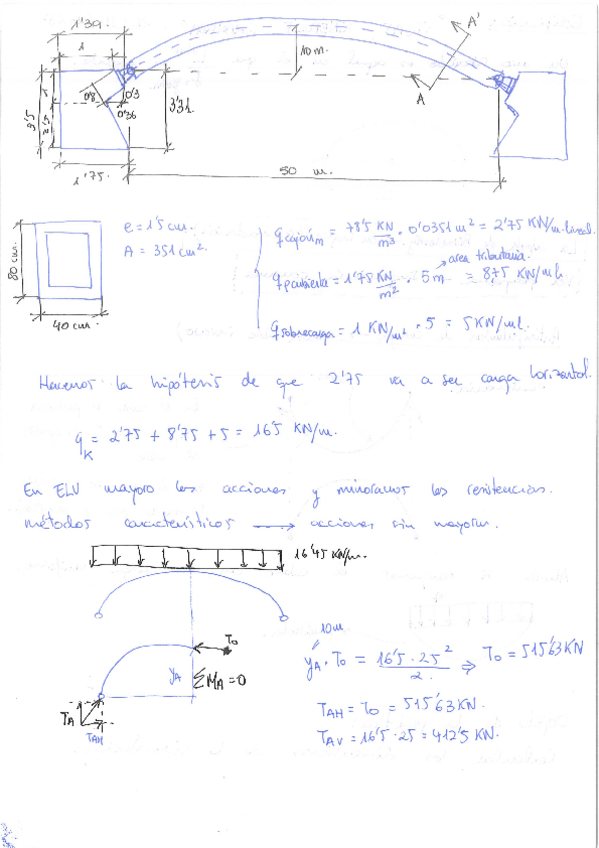 1'39
1
A'
10 m.
A
0'8
0'3
0'36
3'31
1'75
50 m.
80 cm.
40 cm.
e = 1'5 cm.
A = 351 cm²
q cajón m = 78'5 KN/m³ · 0'0351 m² = 2'75 KN/m lineal.
area tributaria
q cubierta = 1'75 KN/m² · 5m = 8'75 KN/ml
q sobrecarga = 1 KN/m² · 5 = 5 KN/ml.
Hacemos la hipótesis de que 2'75 va a ser carga horizontal.
qK = 2'75 + 8'75 + 5 = 16'5 KN/m.
En ELU mayoro las acciones y minoramos las resistencias.
métodos característicos → acciones sin mayorar.
16'45 KN/m.
10m
To
yA
ΣMA = 0
yA · To = 16'5 · 25² / 2 ⇒ To = 515'63 KN
TA
TAH
TAH = To = 515'63 KN.
TAV = 16'5 · 25 = 412'5 KN.